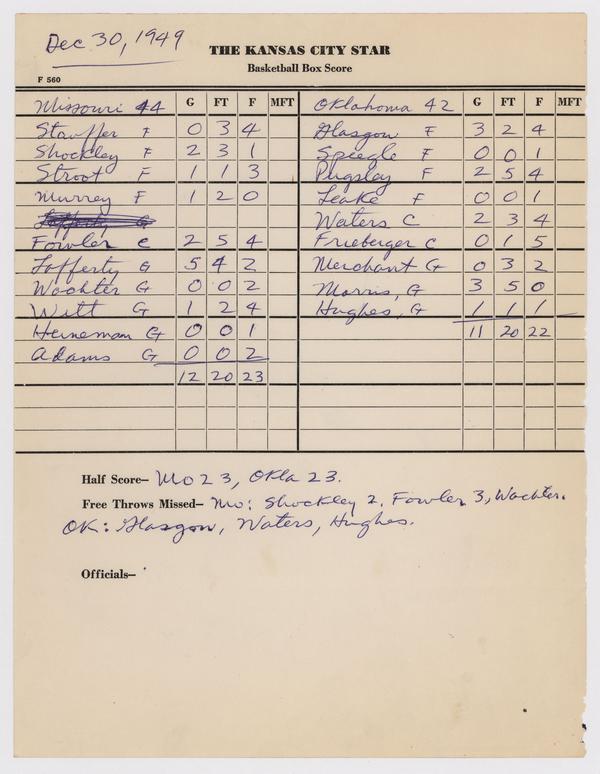 Dec 30, 1949
THE KANSAS CITY STAR
Basketball Box Score
F 560
Missouri 44 G FT F MFT
Stauffer F 0 3 4
Shockley F 2 3 1
Stroot F 1 1 3
Murrey F 1 2 0
Lafferty G
Fowler C 2 5 4
Lafferty G 5 4 2
Wachter G 0 0 2
Witt G 1 2 4
Heineman G 0 0 1
Adams G 0 0 2
12 20 23
Oklahoma 42 G FT F MFT
Glasgow F 3 2 4
Speegle F 0 0 1
Pugsley F 2 5 4
Leake F 0 0 1
Waters C 2 3 4
Frieberger C 0 1 5
Merchant G 0 3 2
Morris, G 3 5 0
Hughes, G 1 1 1
11 20 22
Half Score— Mo 23, Okla 23.
Free Throws Missed— Mo: Shockley 2, Fowler 3, Wachter.
OK: Glasgow, Waters, Hughes.
Officials—